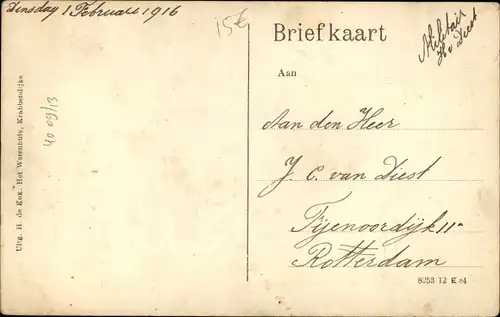 Dinsdag 1 Februari 1916
15€
Briefkaart
Militair
v Diest
Aan
Aan den Heer
J. C. van Diest
Fijenoordijk 11a
Rotterdam
8253 12 E 84
40 09/13
Uitg. H. de Kok. Het Warenhuis, Krabbendijke